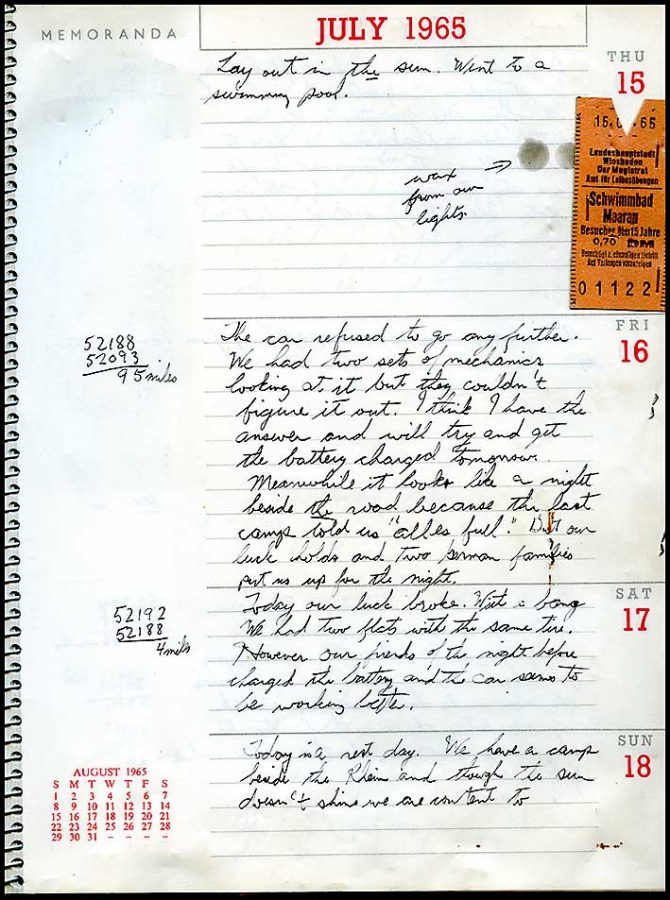 MEMORANDA
JULY 1965
THU
15
Lay out in the sun. Went to a
swimming pool.
wax
from our
lights.
65
Landeshauptstadt
Wiesbaden
Der Magistrat
Amt für Leibesübungen
Schwimmbad
Maarau
Besucher über 15 Jahre
0,70 DM
01122
FRI
16
52188
52093
95 miles
The car refused to go any further.
We had two sets of mechanics
looking at it but they couldn't
figure it out. I think I have the
answer and will try and get
the battery charged tomorrow.
Meanwhile it looks like a night
beside the road because the last
camp told us "alles full." But our
luck holds and two German families
put us up for the night.
SAT
17
52192
52188
4 miles
Today our luck broke. With a bang
We had two flats with the same tire.
However our friends of the night before
charged the battery and the car seems to
be working better.
SUN
18
Today is a rest day. We have a camp
beside the Rhein and though the sun
doesn't shine we are content to
AUGUST 1965
S M T W T F S
1 2 3 4 5 6 7
8 9 10 11 12 13 14
15 16 17 18 19 20 21
22 23 24 25 26 27 28
29 30 31 - - - -